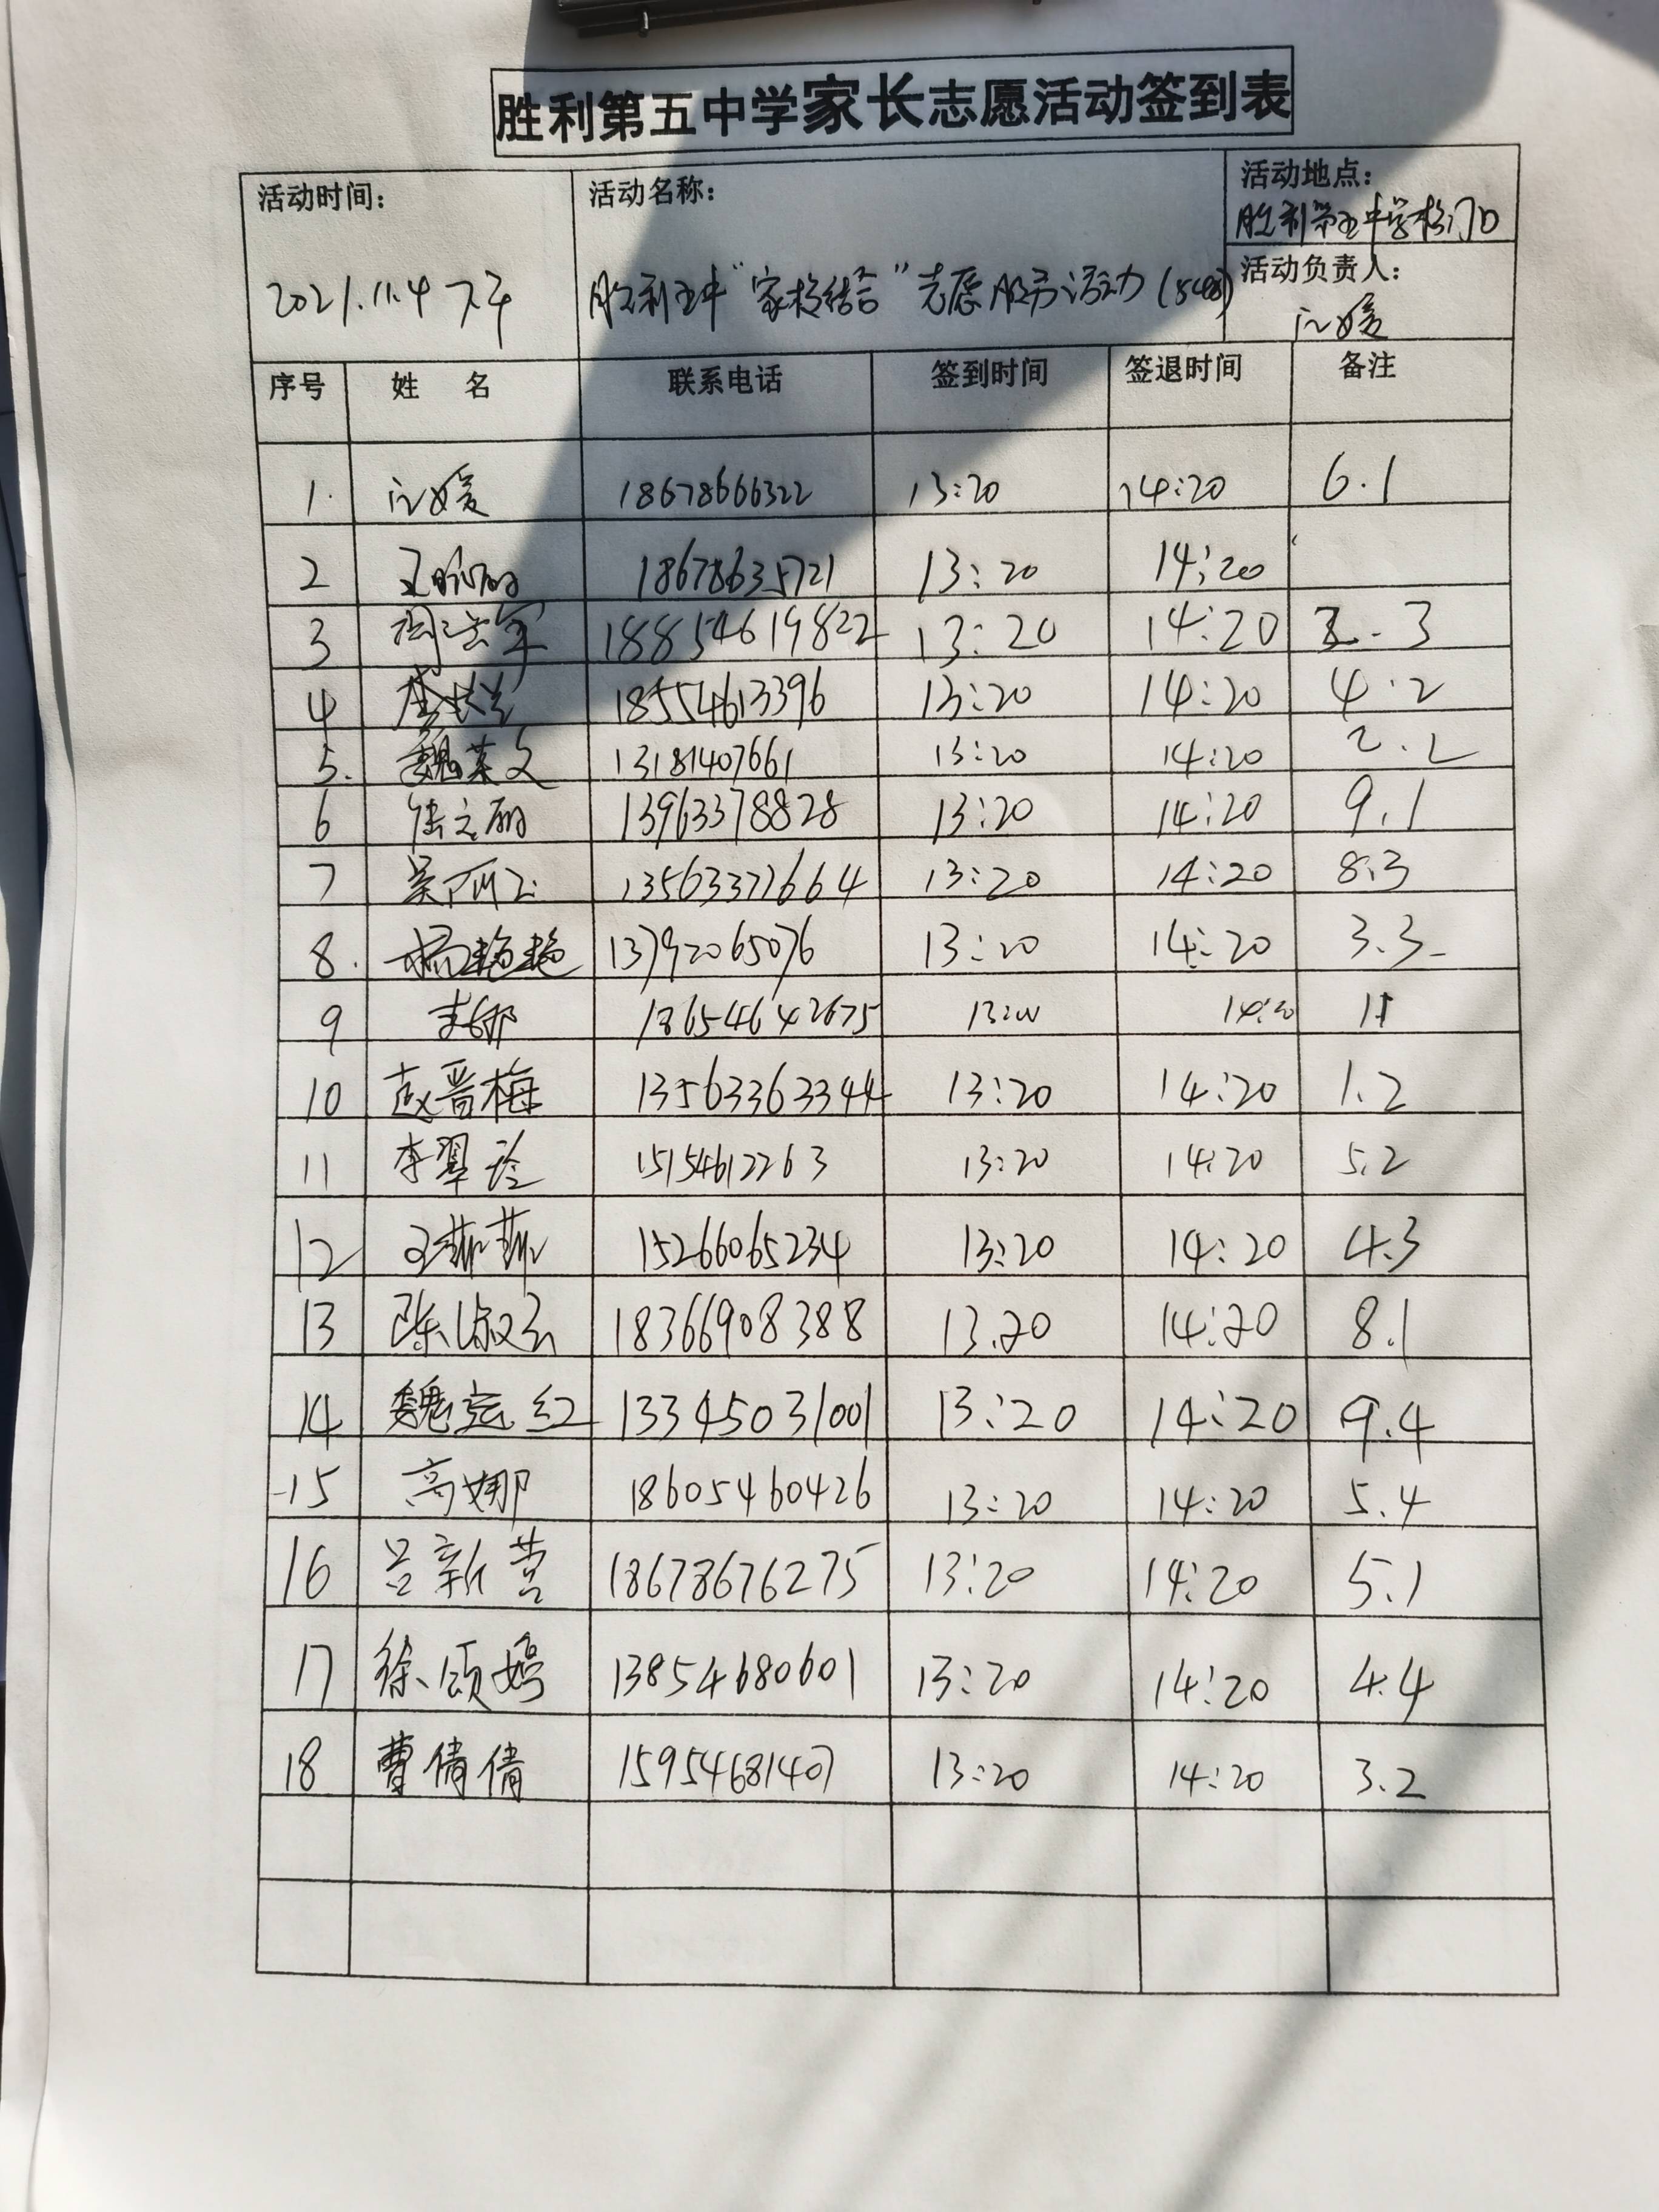 胜利第五中学家长志愿活动签到表
活动时间：
2021.11.4 下午
活动名称：
胜利五中“家校结合”志愿服务活动
活动地点：
胜利第五中学校门口
活动负责人：
媛
序号 姓 名 联系电话 签到时间 签退时间 备注
1. 媛 18678666322 13:20 14:20 6.1
2 王 18678635721 13:20 14:20
3 18854619822 13:20 14:20 3
4 18554613396 13:20 14:20 4.2
5. 魏英文 13181407661 13:20 14:20 2.2
6 丽 13963378828 13:20 14:20 9.1
7 吴 13563372664 13:20 14:20 8.3
8. 杨艳艳 13792065076 13:20 14:20 3.3
9 李娜 18654642675 13:20 14:20 1.1
10 赵晋梅 13563363344 13:20 14:20 1.2
11 李翠玲 15154612263 13:20 14:20 5.2
12 王菲菲 15266065234 13:20 14:20 4.3
13 陈淑云 18366908388 13.20 14:20 8.1
14 魏 红 13345031001 13:20 14:20 9.4
15 高娜 18605460426 13:20 14:20 5.4
16 吕新营 18678676275 13:20 14:20 5.1
17 徐颂娉 13854680601 13:20 14:20 4.4
18 曹倩倩 15954681407 13:20 14:20 3.2